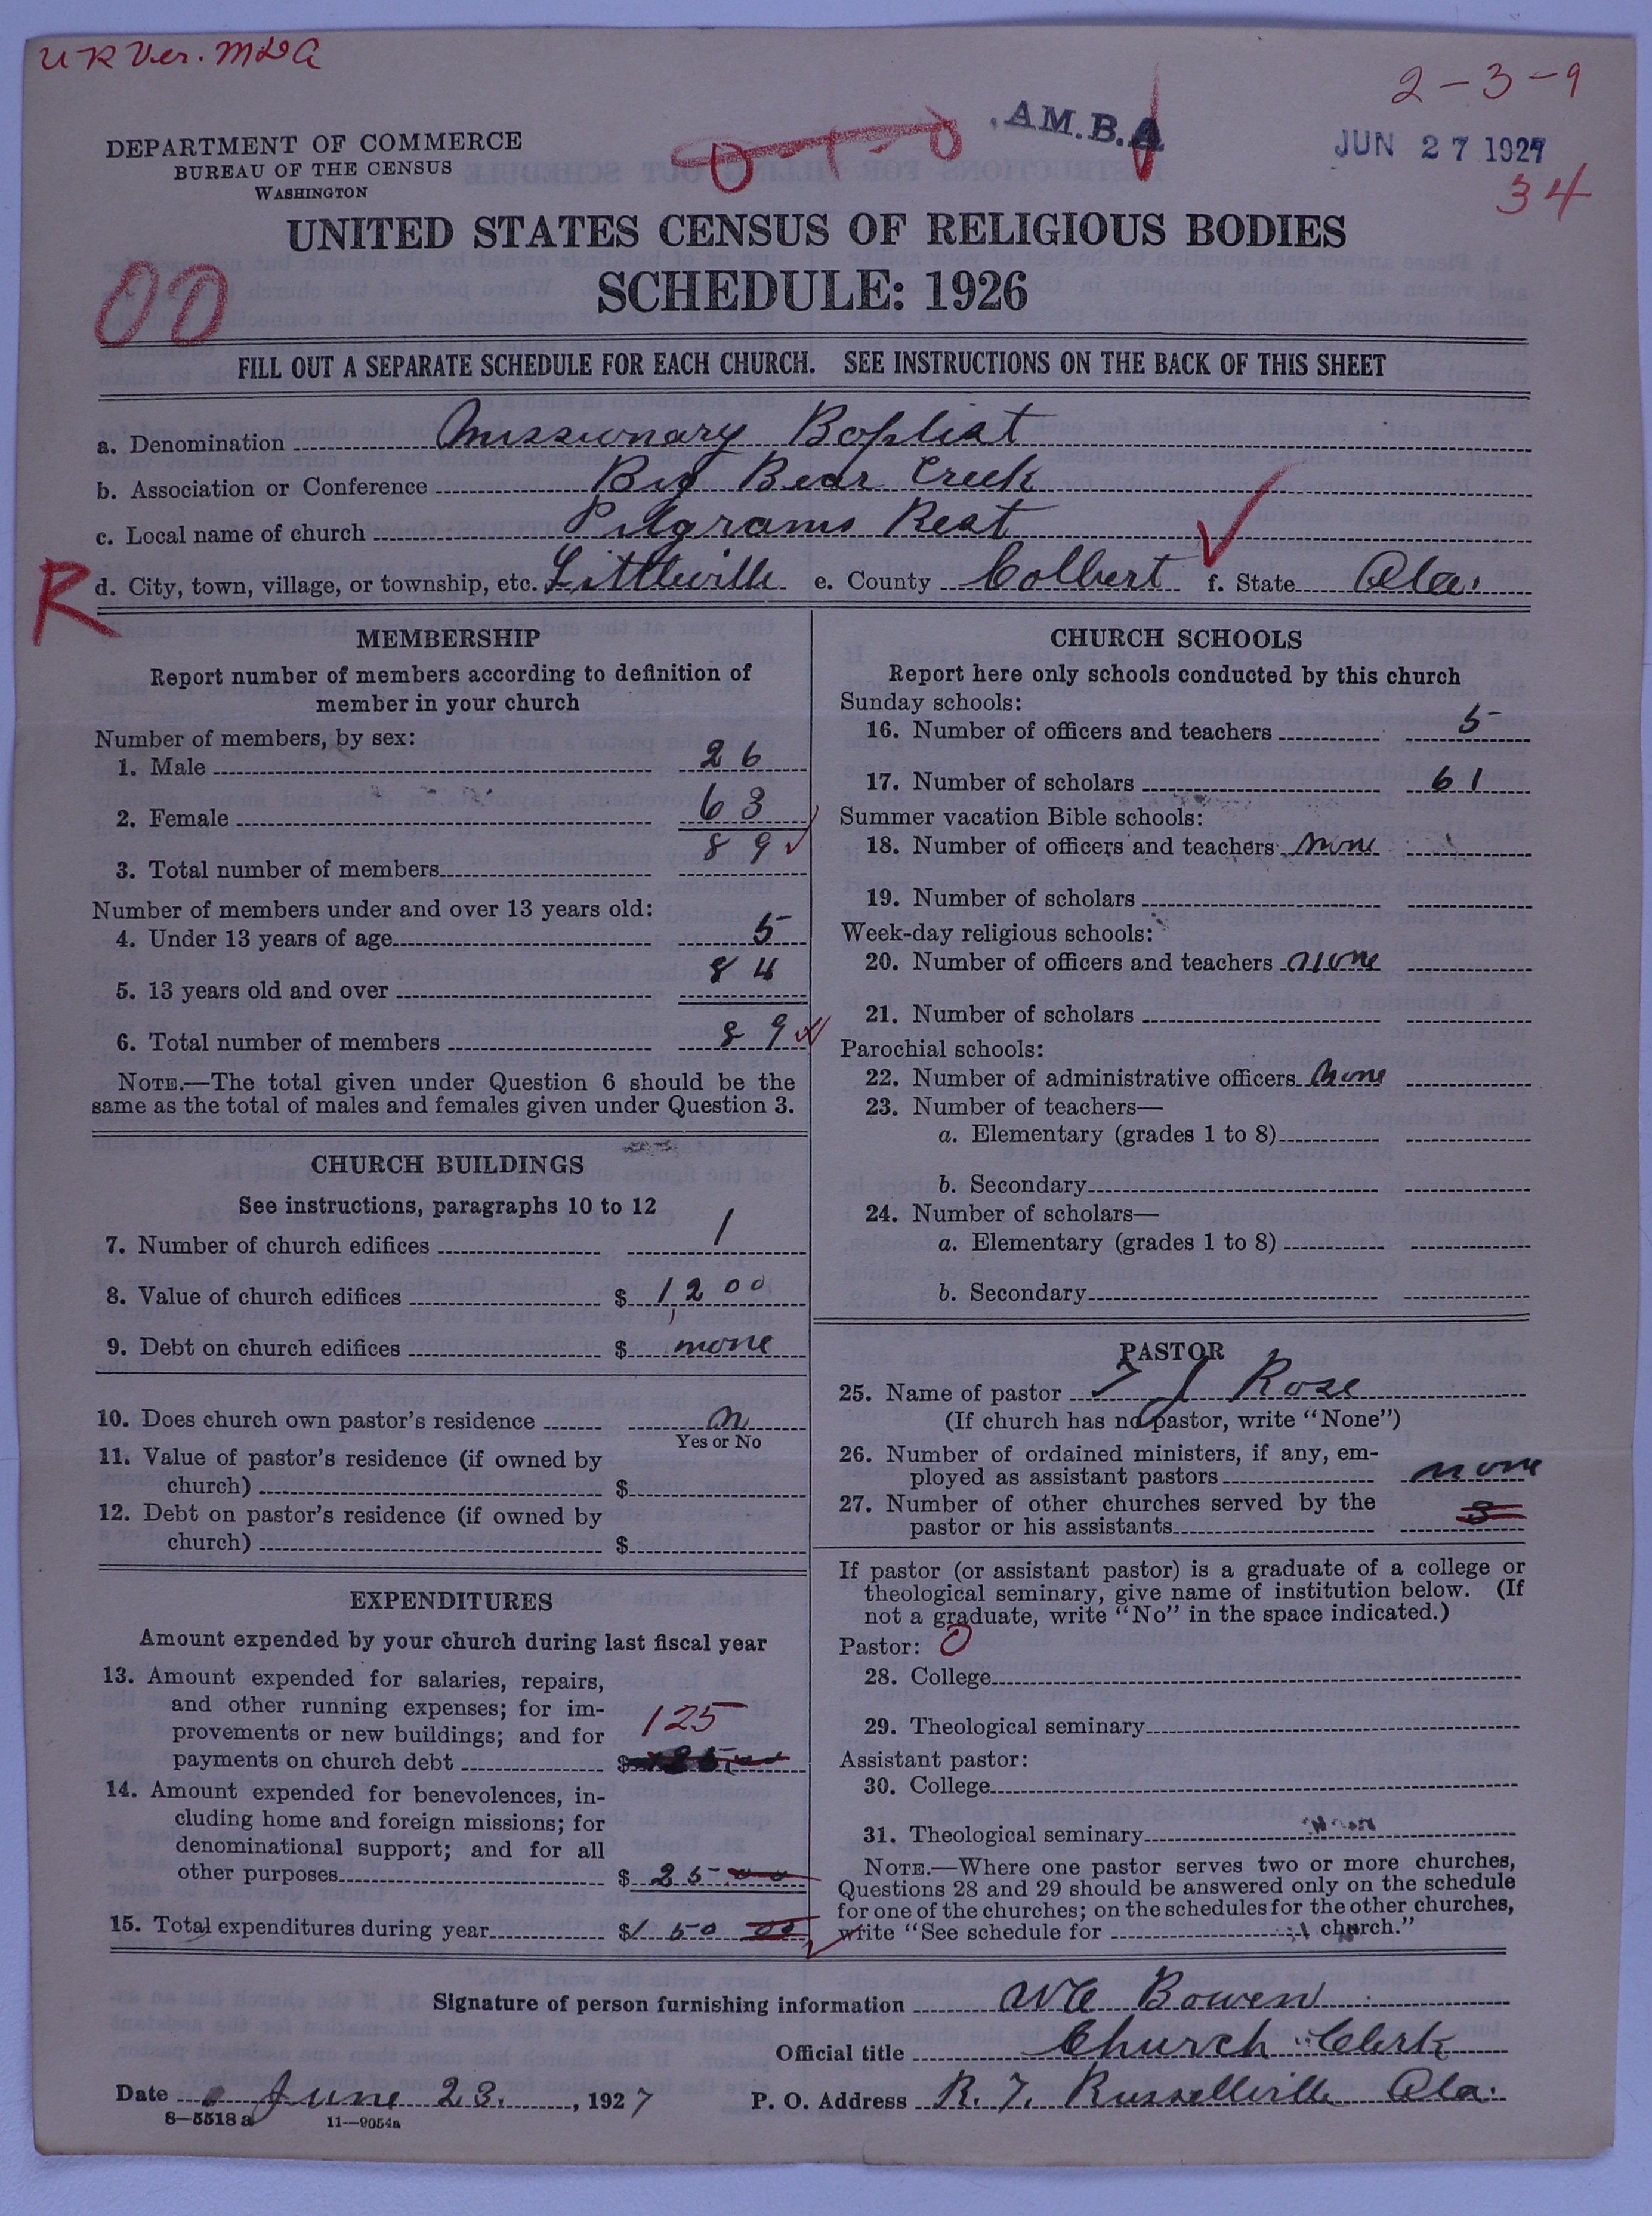 U R Ver. M L A
2-3-9
AM.B.A
JUN 27 1927
34
DEPARTMENT OF COMMERCE
BUREAU OF THE CENSUS
WASHINGTON
UNITED STATES CENSUS OF RELIGIOUS BODIES
SCHEDULE: 1926
FILL OUT A SEPARATE SCHEDULE FOR EACH CHURCH. SEE INSTRUCTIONS ON THE BACK OF THIS SHEET
a. Denomination Missionary Baptist
b. Association or Conference Big Bear Creek
c. Local name of church Pilgrams Rest
R
d. City, town, village, or township, etc. Littleville e. County Colbert f. State Ala.
MEMBERSHIP
Report number of members according to definition of
member in your church
Number of members, by sex:
1. Male 26
2. Female 63
3. Total number of members 89
Number of members under and over 13 years old:
4. Under 13 years of age 5
5. 13 years old and over 84
6. Total number of members 89
NOTE.—The total given under Question 6 should be the
same as the total of males and females given under Question 3.
CHURCH BUILDINGS
See instructions, paragraphs 10 to 12
7. Number of church edifices 1
8. Value of church edifices $ 1200
9. Debt on church edifices $ none
10. Does church own pastor's residence
Yes or No
11. Value of pastor's residence (if owned by
church) $
12. Debt on pastor's residence (if owned by
church) $
EXPENDITURES
Amount expended by your church during last fiscal year
13. Amount expended for salaries, repairs,
and other running expenses; for im-
provements or new buildings; and for 125
payments on church debt $
14. Amount expended for benevolences, in-
cluding home and foreign missions; for
denominational support; and for all
other purposes $ 25 00
15. Total expenditures during year $ 150 00
CHURCH SCHOOLS
Report here only schools conducted by this church
Sunday schools:
16. Number of officers and teachers 5
17. Number of scholars 61
Summer vacation Bible schools:
18. Number of officers and teachers none
19. Number of scholars
Week-day religious schools:
20. Number of officers and teachers none
21. Number of scholars
Parochial schools:
22. Number of administrative officers none
23. Number of teachers—
a. Elementary (grades 1 to 8)
b. Secondary
24. Number of scholars—
a. Elementary (grades 1 to 8)
b. Secondary
PASTOR
25. Name of pastor T J Rose
(If church has no pastor, write "None")
26. Number of ordained ministers, if any, em-
ployed as assistant pastors none
27. Number of other churches served by the
pastor or his assistants 3
If pastor (or assistant pastor) is a graduate of a college or
theological seminary, give name of institution below. (If
not a graduate, write "No" in the space indicated.)
Pastor: 0
28. College
29. Theological seminary
Assistant pastor:
30. College
31. Theological seminary
NOTE.—Where one pastor serves two or more churches,
Questions 28 and 29 should be answered only on the schedule
for one of the churches; on the schedules for the other churches,
write "See schedule for church."
Signature of person furnishing information Bowen
Official title Church Clerk
Date June 23, 1927 P. O. Address R. 7. Russellville Ala.
8—5518 a 11—9054a